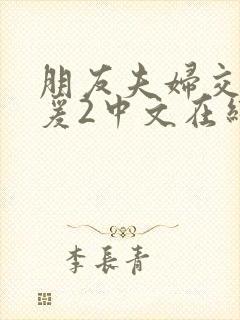 朋友夫婦交
爰2中文在
李長青